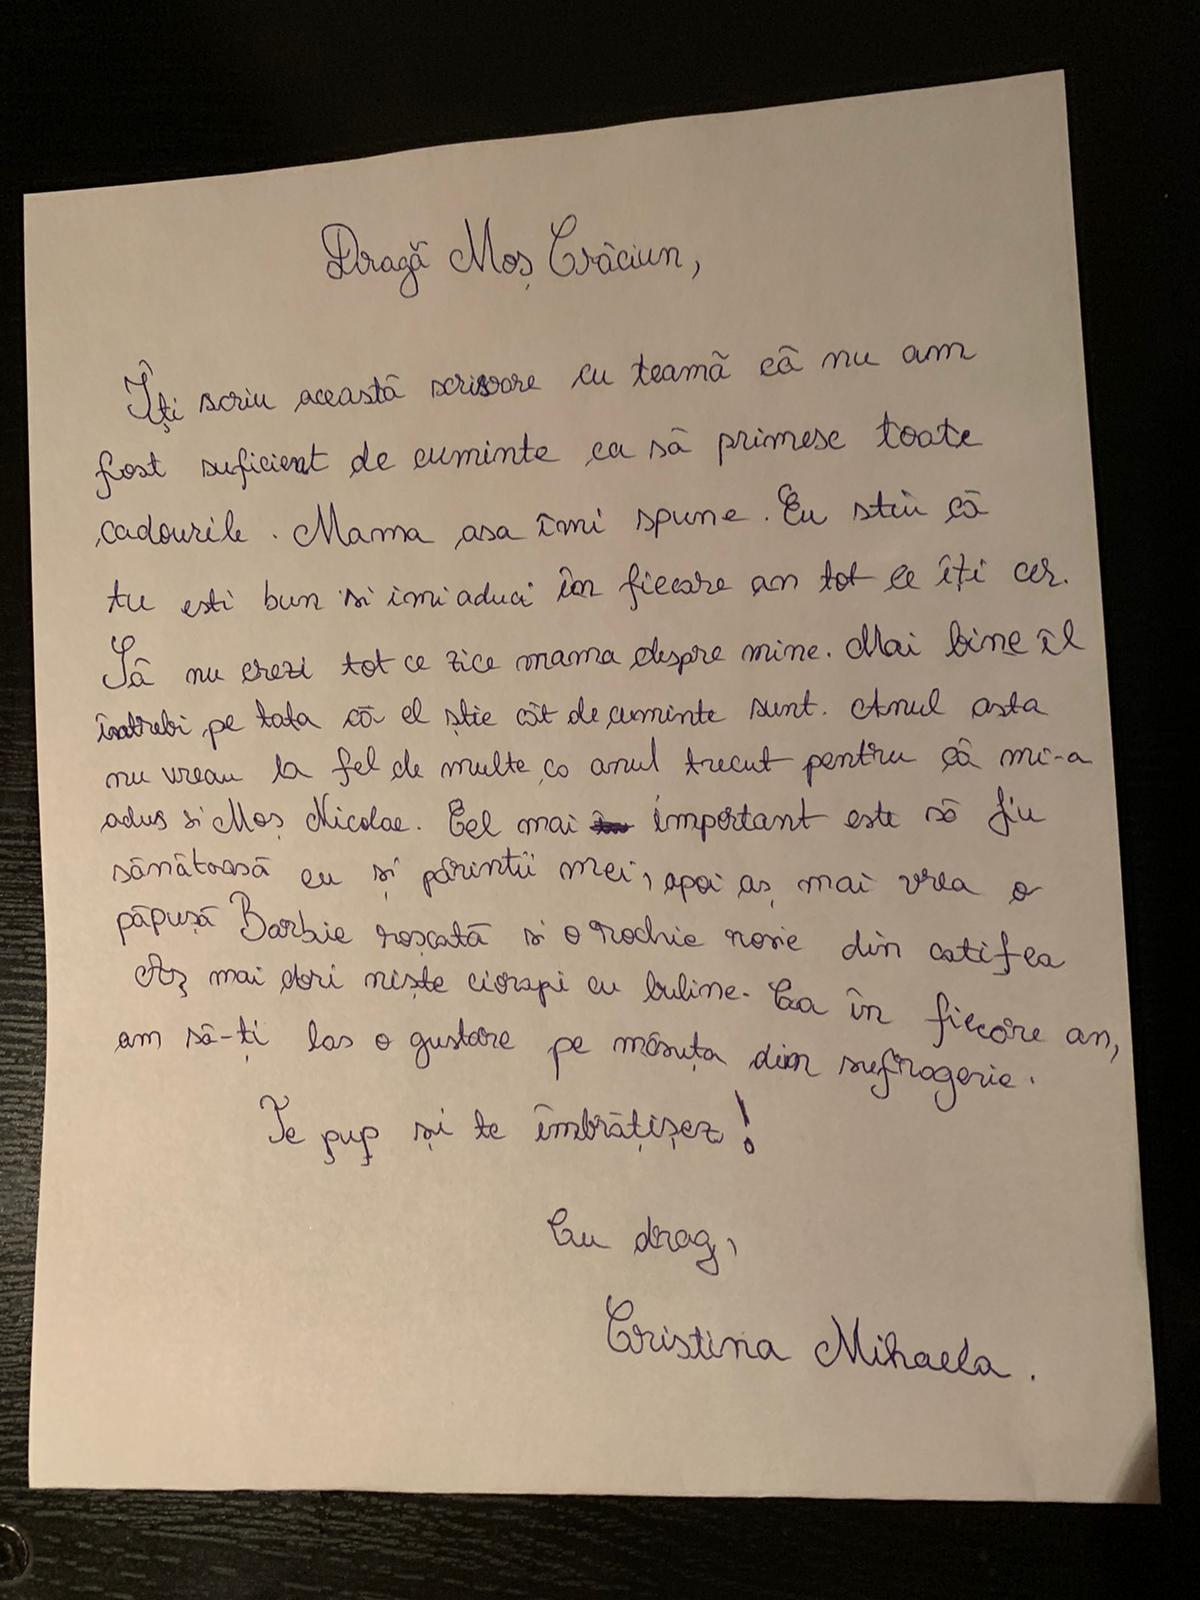 Dragă Moș Crăciun,
Îți scriu această scrisoare cu teamă că nu am
fost suficient de cuminte ca să primesc toate
cadourile. Mama asa îmi spune. Eu stiu că
tu esti bun si imi aduci în fiecare an tot ce îți cer.
Să nu crezi tot ce zice mama despre mine. Mai bine îl
întrebi pe tata că el știe cât de cuminte sunt. Anul asta
nu vreau la fel de multe ca anul trecut pentru că mi-a
adus si Moș Nicolae. Cel mai important este să fiu
sănătoasă eu și părintii mei, apoi aș mai vrea o
păpușă Barbie roșcată si o rochie rosie din catifea
Aș mai dori niște ciorapi cu buline. Ca în fiecare an,
am să-ți las o gustare pe măsuța din sufragerie.
Te pup și te îmbrățișez!
Cu drag,
Cristina Mihaela.